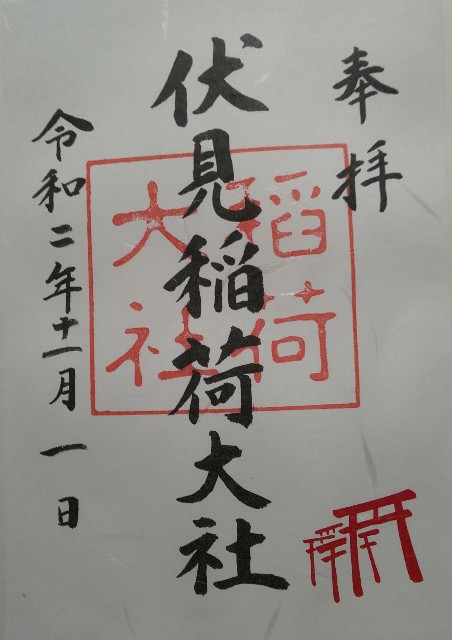 奉拝
伏見稲荷大社
稲荷
大社
令和二年十一月一日